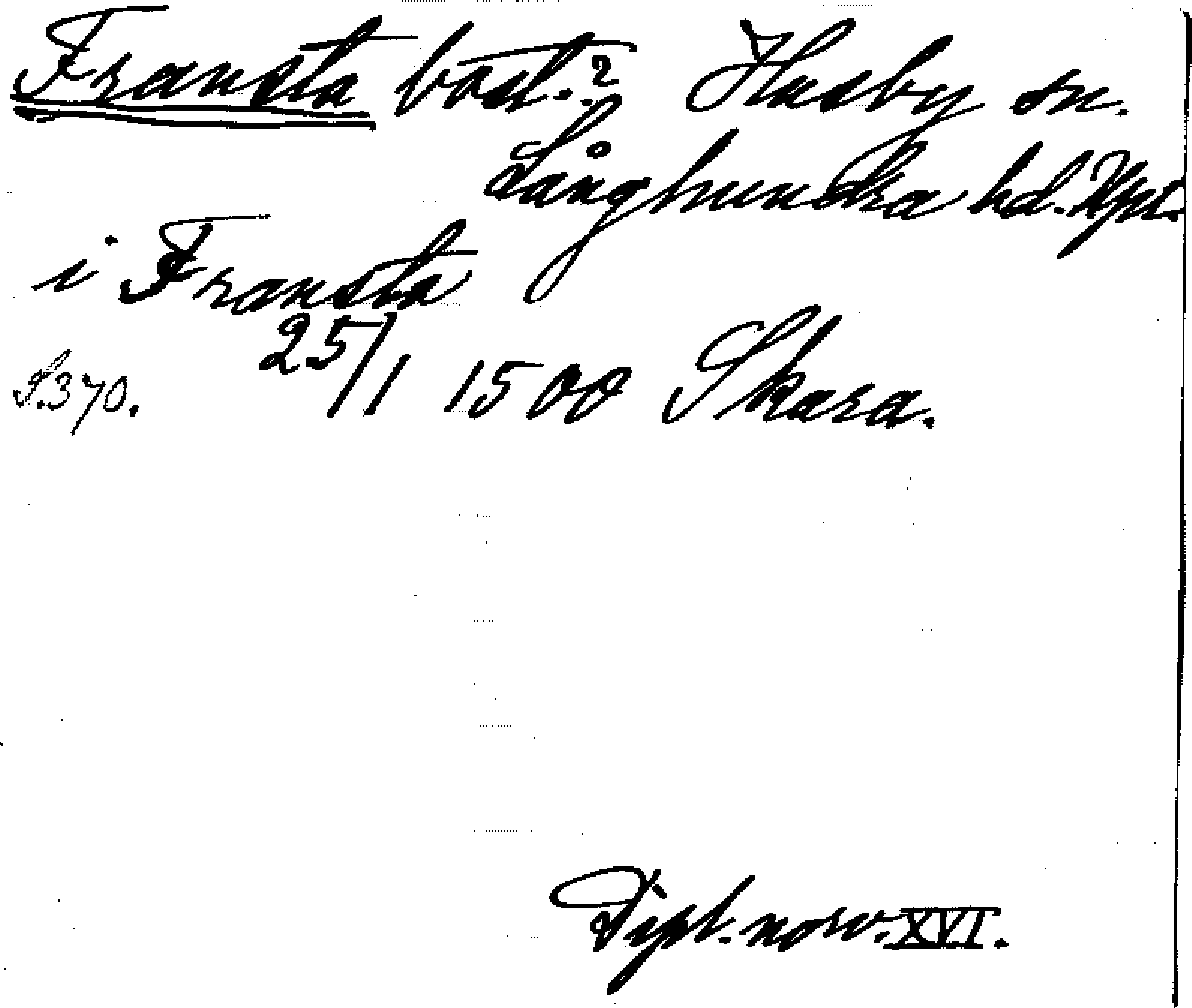 Fransta bost.? Husby sn.
Långhundra hd. Upl.
i Fransta
S. 370. 25/1 1500 Skara.
Dipl. norv. XVI.